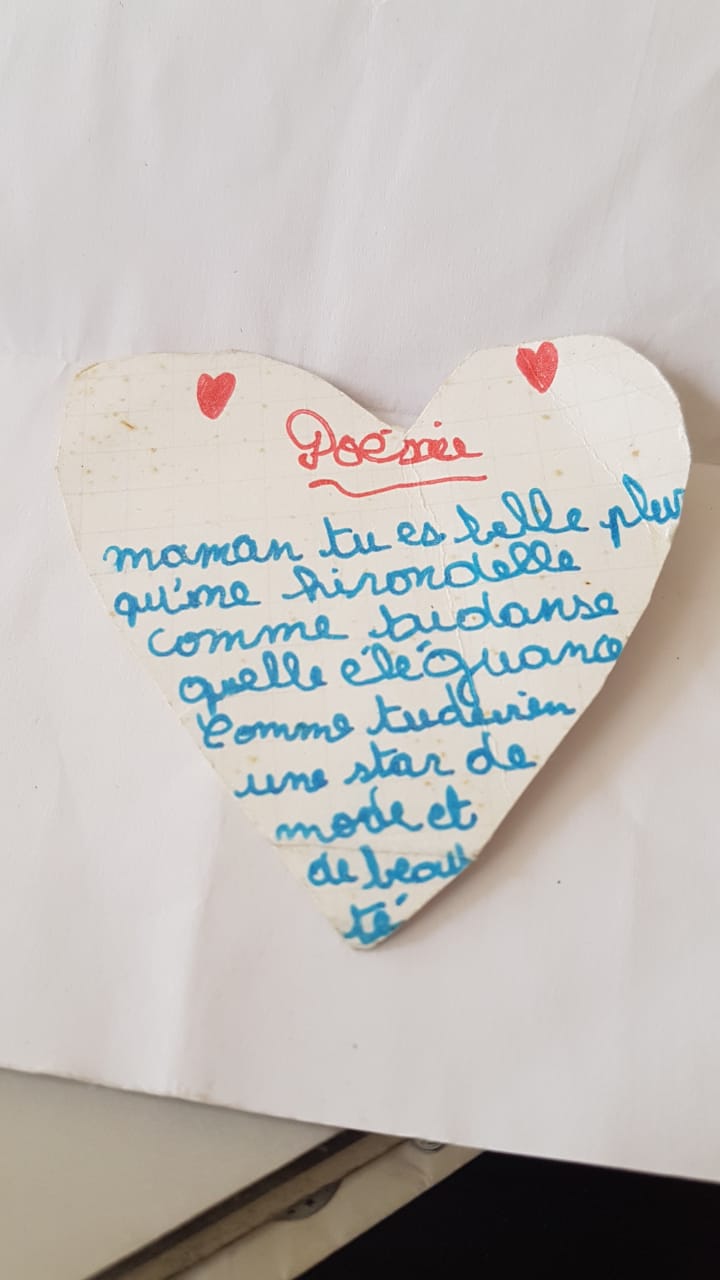 Poésiee
maman tu es belle plus
qu'une hirondelle
comme tu danse
quelle éléguance
comme tu devien
une star de
mode et
de beau
té